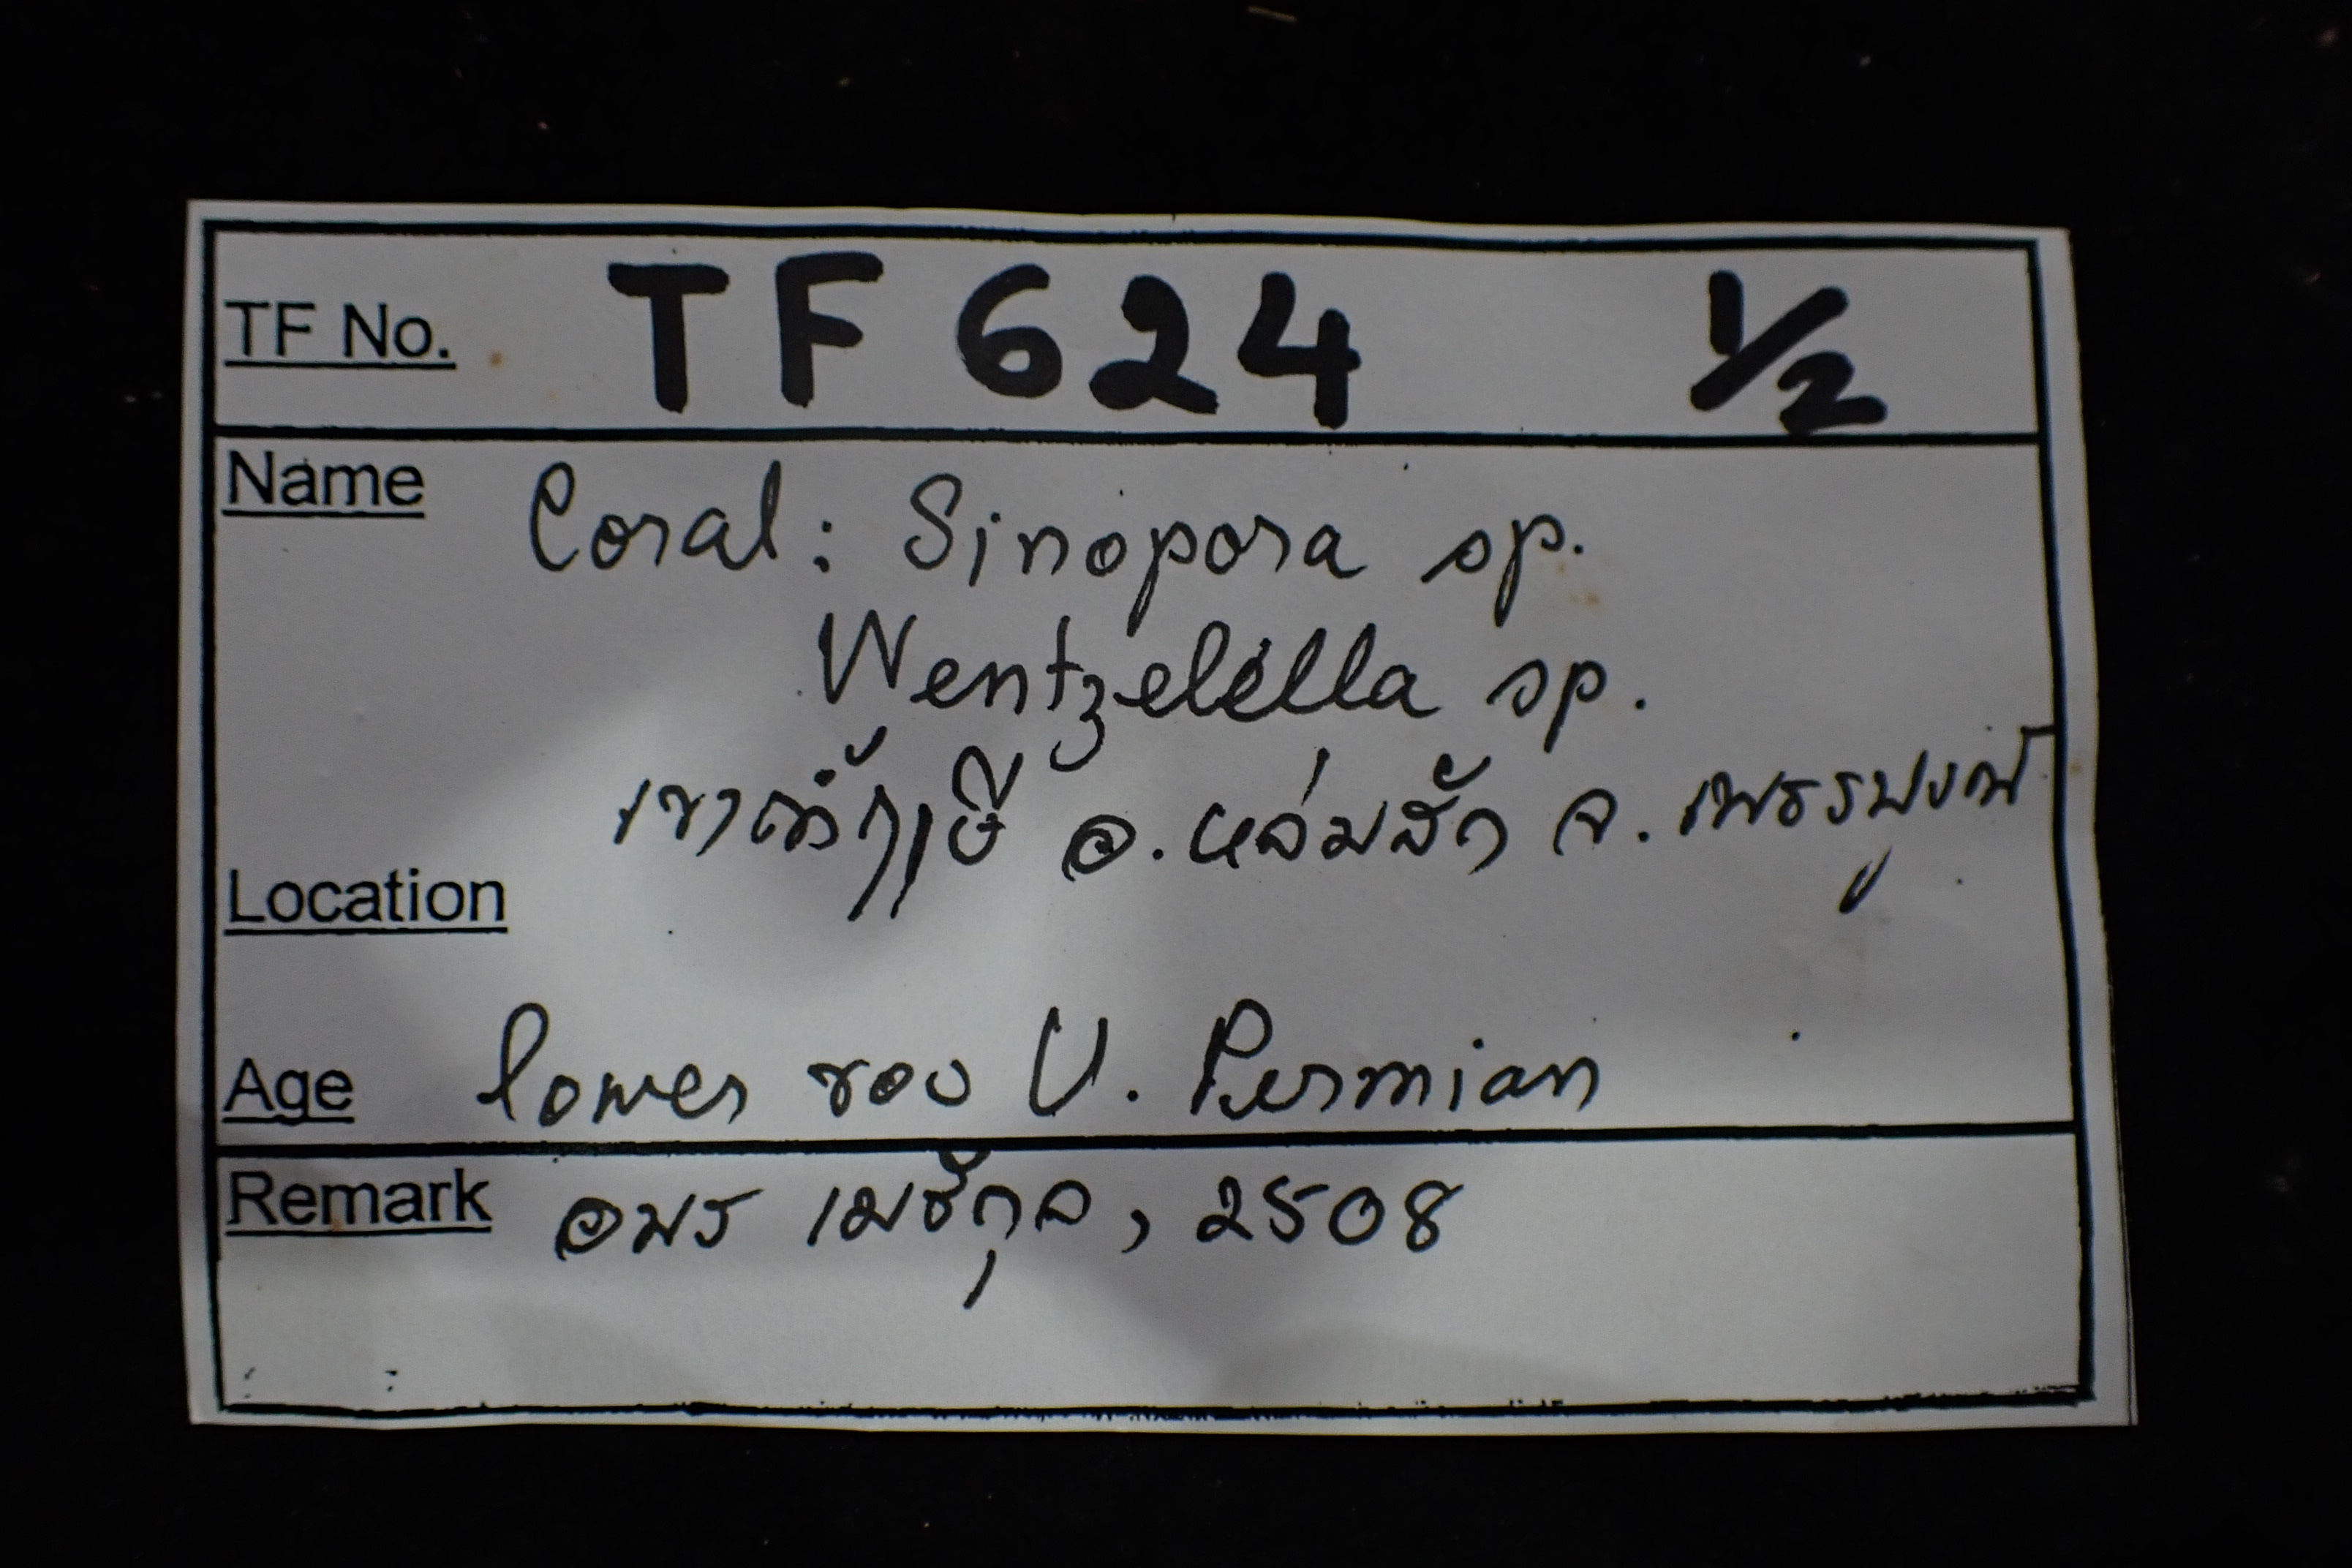 TF No. TF 624 1/2
Name Coral: Sinopora sp.
Wentzelella sp.
Location เขาถ้ำฤาษี อ.หล่มสัก จ.เพชรบูรณ์
Age lower ของ U. Permian
Remark อมร เมธิกุล, 2508